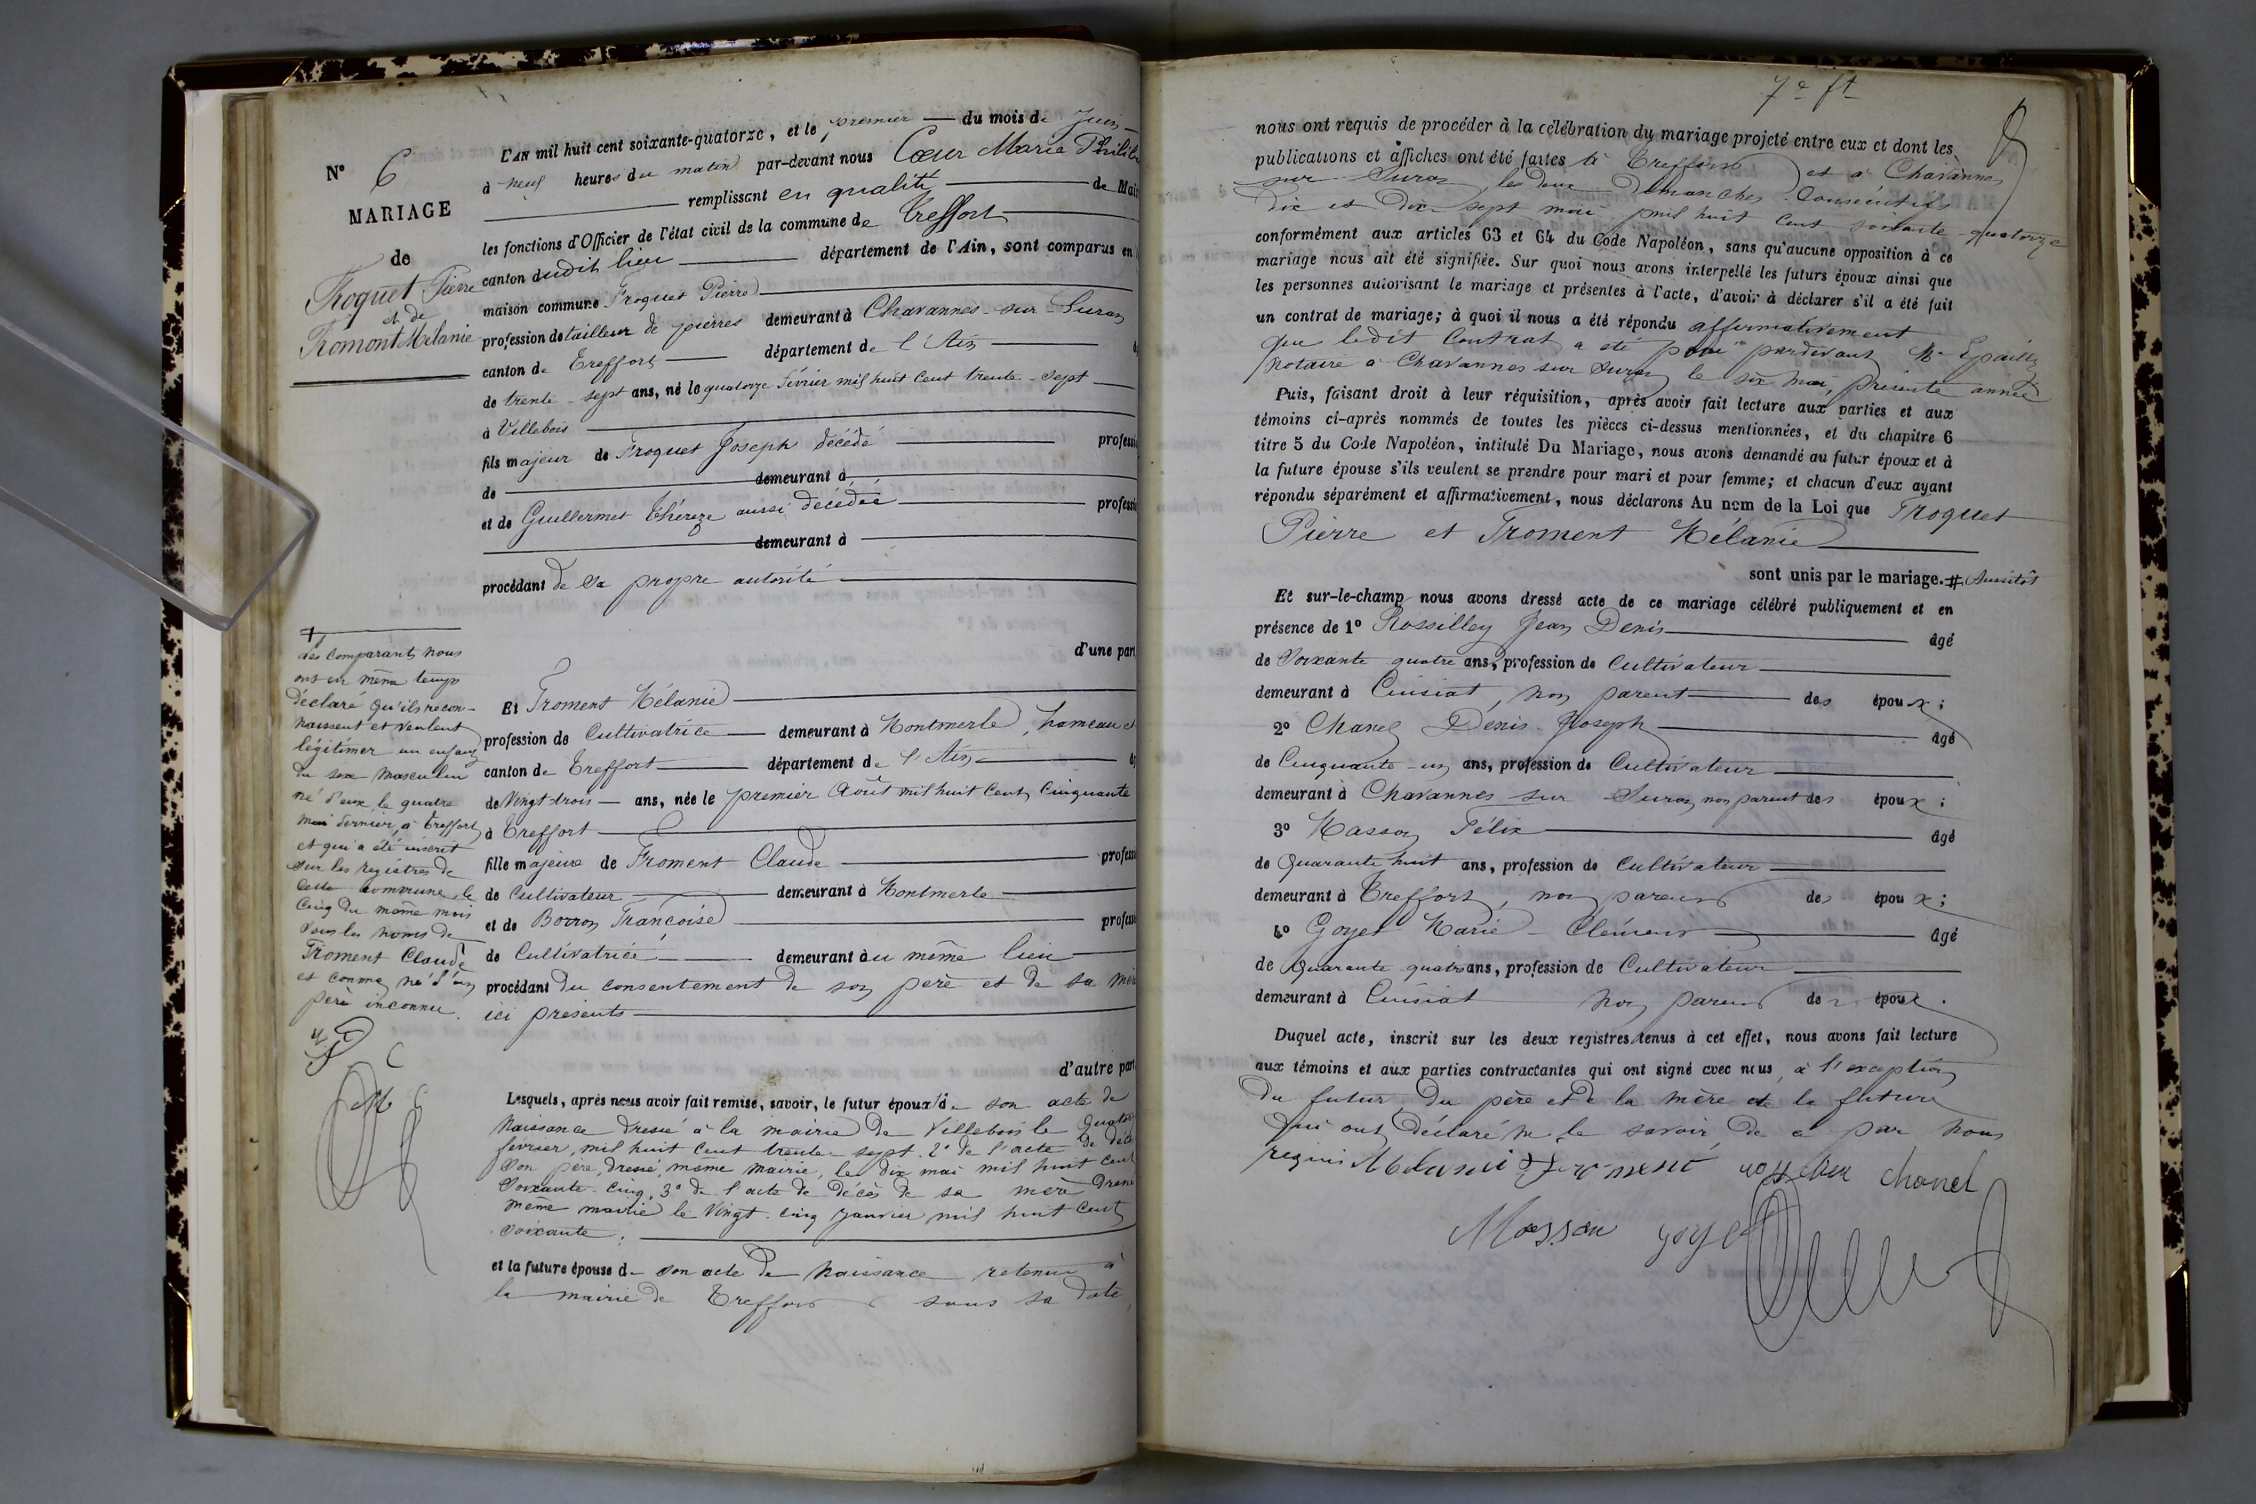 N° 6
MARIAGE
de
Froquet Pierre
et de
Froment Mélanie
L'AN mil huit cent soixante-quatorze, et le premier du mois de Juin
à neuf heures du matin par-devant nous Cœur Marie Philib
remplissant en qualité de Mair
les fonctions d'Officier de l'état civil de la commune de Treffort
canton dudit lieu département de l'Ain, sont comparus en
maison commune Froquet Pierre
profession de tailleur de pierres demeurant à Chavannes-sur-Suran
canton de Treffort département de l'Ain
de trente-sept ans, né le quatorze février mil huit cent trente-sept
à Villebois
fils majeur de Froquet Joseph décédé professi
de demeurant à
et de Guillermet Thérèze aussi décédée professi
demeurant à
procédant de sa propre autorité
d'une part
Et Froment Mélanie
profession de Cultivatrice demeurant à Montmerle, hameau d
canton de Treffort département de l'Ain
de Vingt-trois ans, née le premier Août mil huit cent cinquante
à Treffort
fille majeure de Froment Claude profess
de Cultivateur demeurant à Montmerle
et de Borron Françoise profess
de Cultivatrice demeurant au même lieu
procédant du consentement de son père et de sa mère
ici présents
d'autre part
Lesquels, après nous avoir fait remise, savoir, le futur époux 1° de son acte de
naissance dressé à la mairie de Villebois le quatorze
février, mil huit cent trente-sept. 2° de l'acte de décès
son père, dressé même mairie, le dix mai mil huit cent
soixante-cinq, 3° de l'acte de décès de sa mère dressé
même mairie le Vingt-cinq Janvier mil huit cent
soixante.
et la future épouse de son acte de naissance retenu à
la mairie de Treffort sous sa date
des comparants nous
ont en même temps
déclaré qu'ils recon-
naissent et veulent
légitimer un enfant
du sexe masculin
né d'eux le quatre
mai dernier, à Treffort
et qui a été inscrit
sur les registres de
cette commune le
cinq du même mois
sous les noms de
Froment Claude
et comme né d'un
père inconnu.
7e ft
nous ont requis de procéder à la célébration du mariage projeté entre eux et dont les
publications et affiches ont été faites à Treffort et à Chavannes
sur-Suran les deux Dimanches consécutifs
dix et dix-sept mai mil huit cent soixante-quatorze
conformément aux articles 63 et 64 du Code Napoléon, sans qu'aucune opposition à ce
mariage nous ait été signifiée. Sur quoi nous avons interpellé les futurs époux ainsi que
les personnes autorisant le mariage et présentes à l'acte, d'avoir à déclarer s'il a été fait
un contrat de mariage; à quoi il nous a été répondu affirmativement
que ledit contrat a été passé pardevant Me
notaire à Chavannes sur Suran le six mai, présente année
Puis, faisant droit à leur réquisition, après avoir fait lecture aux parties et aux
témoins ci-après nommés de toutes les pièces ci-dessus mentionnées, et du chapitre 6
titre 5 du Code Napoléon, intitulé Du Mariage, nous avons demandé au futur époux et à
la future épouse s'ils veulent se prendre pour mari et pour femme; et chacun d'eux ayant
répondu séparément et affirmativement, nous déclarons Au nom de la Loi que Froquet
Pierre et Froment Mélanie
sont unis par le mariage. # Aussitôt
Et sur-le-champ nous avons dressé acte de ce mariage célébré publiquement et en
présence de 1° Rossilley Jean Denis âgé
de soixante quatre ans, profession de Cultivateur
demeurant à Cuisiat, non parent des époux;
2° Chanel Denis-Joseph âgé
de Cinquante-un ans, profession de Cultivateur
demeurant à Chavannes sur Suran non parent des époux;
3° Masson Félix âgé
de quarante huit ans, profession de Cultivateur
demeurant à Treffort, non parent des époux;
4° Goyet Marie-Clément âgé
de quarante quatre ans, profession de Cultivateur
demeurant à Cuisiat non parent des époux.
Duquel acte, inscrit sur les deux registres tenus à cet effet, nous avons fait lecture
aux témoins et aux parties contractantes qui ont signé avec nous, à l'exception
du futur, du père et de la mère de la future
qui ont déclaré ne le savoir, de ce par nous
requis Melanie Froment Chanel
Masson goyet